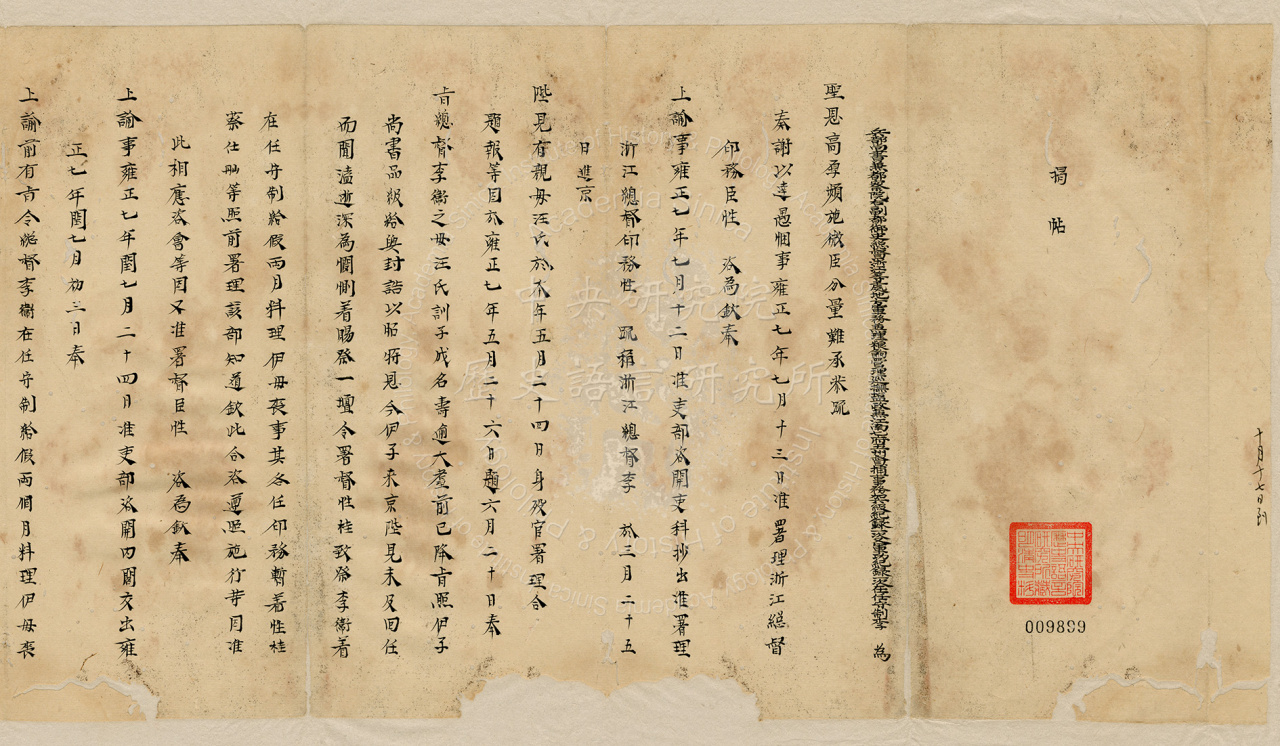 十月十七日到
揭帖
009899
兵部尚書兼都察院右副都御史總督浙江等處地方軍務兼理糧餉管理巡撫鹽政兼江南七府五州督捕事務 在任守制李 為
聖恩高厚頻施微臣分量難承恭疏
奏謝以達愚悃事雍正七年七月十三日准署理浙江總督
印務臣性 咨為欽奉
上諭事雍正七年七月十二日准吏部咨開吏科抄出淮署理
浙江總督印務性 疏稱浙江總督李 於三月二十五
日進京
陛見有親母汪氏於本年五月二十四日身歿官署理合
題報等因於雍正七年五月二十六日題六月二十日奉
旨總督李衛之母汪氏訓子成名壽逾大耋前已降旨照伊子
尚書品級給與封誥以昭特恩今伊子來京陛見未及回任
而聞溘逝深為憫惻着賜祭一壇令署督性桂致祭李衛着
在任守制給假兩月料理伊母喪事其各任印務暫着性桂
蔡仕舢等照前署理該部知道欽此合咨遵照施行等因准
此相應咨會等因又准署督臣性 咨為欽奉
上諭事雍正七年閏七月二十四日准吏部咨開內閣交出雍
正七年閏七月初三日奉
上諭前有旨令總督李衛在任守制給假兩個月料理伊母喪
中央研究院
歷史語言研究所